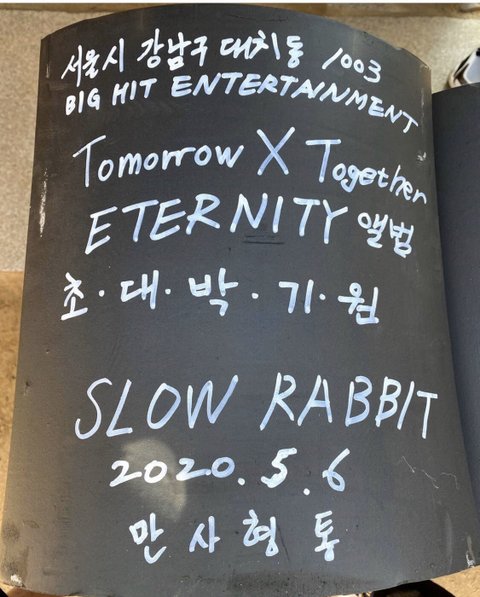 서울시 강남구 대치동 1003
BIG HIT ENTERTAINMENT
Tomorrow X Together
ETERNITY 앨범
초·대·박·기·원
SLOW RABBIT
2020.5.6
만사형통